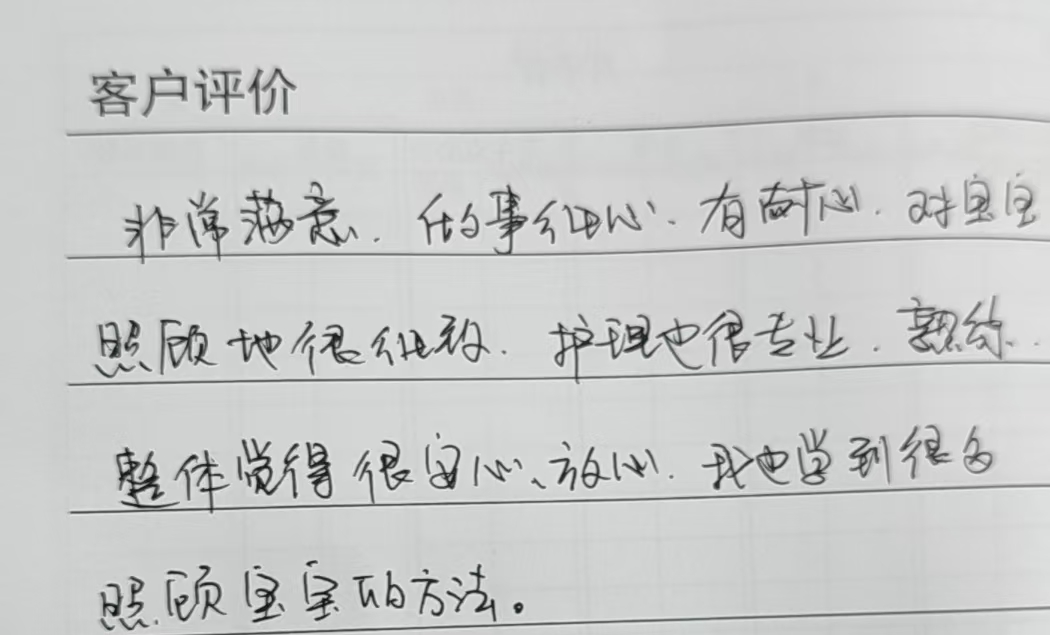 客户评价
非常满意. 做事细心. 有耐心. 对宝宝
照顾地很细致. 护理也很专业. 熟练.
整体觉得很安心、放心. 我也学到很多
照顾宝宝的方法。